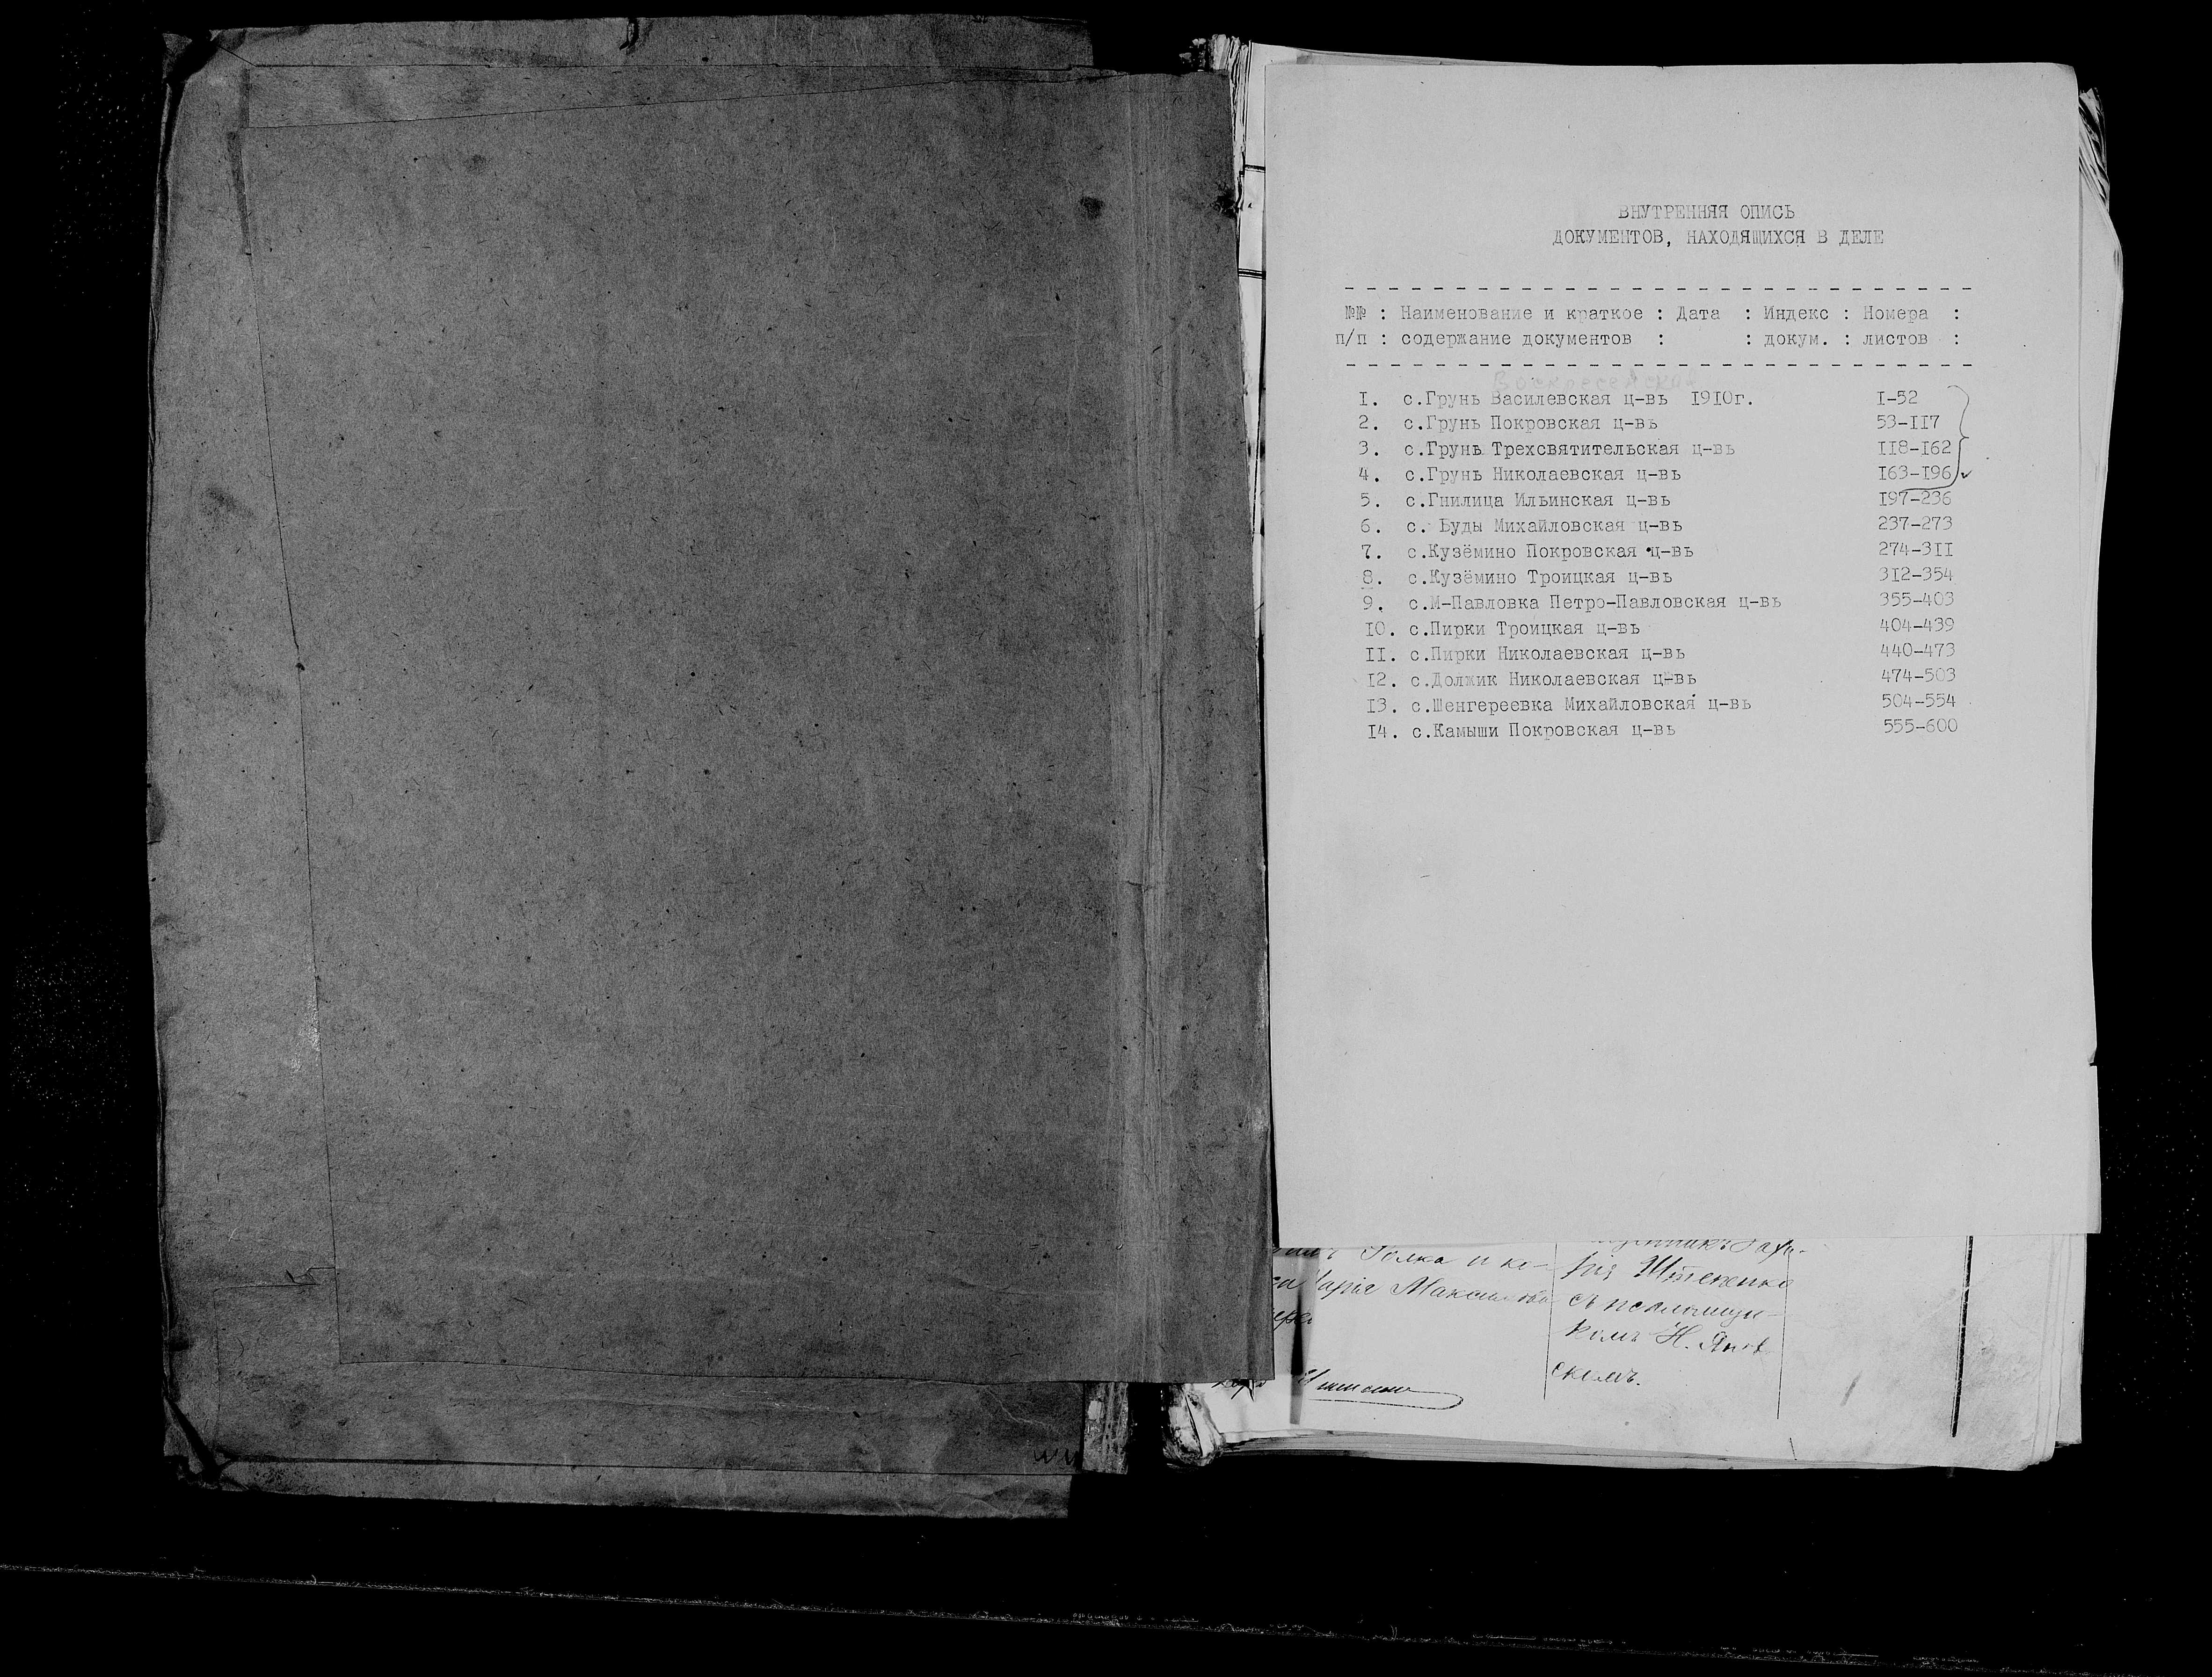 ВНУТРЕННЯЯ ОПИСЬ
ДОКУМЕНТОВ, НАХОДЯЩИХСЯ В ДЕЛЕ
№№ : Наименование и краткое : Дата : Индекс : Номера :
п/п : содержание документов : : докум. : листов :
Воскресенская
I. с.Грунь Василевская ц-вь I9I0г. I-52
2. с.Грунь Покровская ц-вь 53-II7
3. с.Грунь Трехсвятительская ц-вь II8-I62
4. с.Грунь Николаевская ц-вь I63-I96
5. с.Гнилица Ильинская ц-вь I97-236
6. с. Буды Михайловская ц-вь 237-273
7. с.Кузёмино Покровская ц-вь 274-3II
8. с.Кузёмино Троицкая ц-вь 3I2-354
9. с.М-Павловка Петро-Павловская ц-вь 355-403
I0. с.Пирки Троицкая ц-вь 404-439
II. с.Пирки Николаевская ц-вь 440-473
I2. с.Должик Николаевская ц-вь 474-503
I3. с.Шенгереевка Михайловская ц-вь 504-554
I4. с.Камыши Покровская ц-вь 555-600
съ
комъ Н. Янов
скимъ.